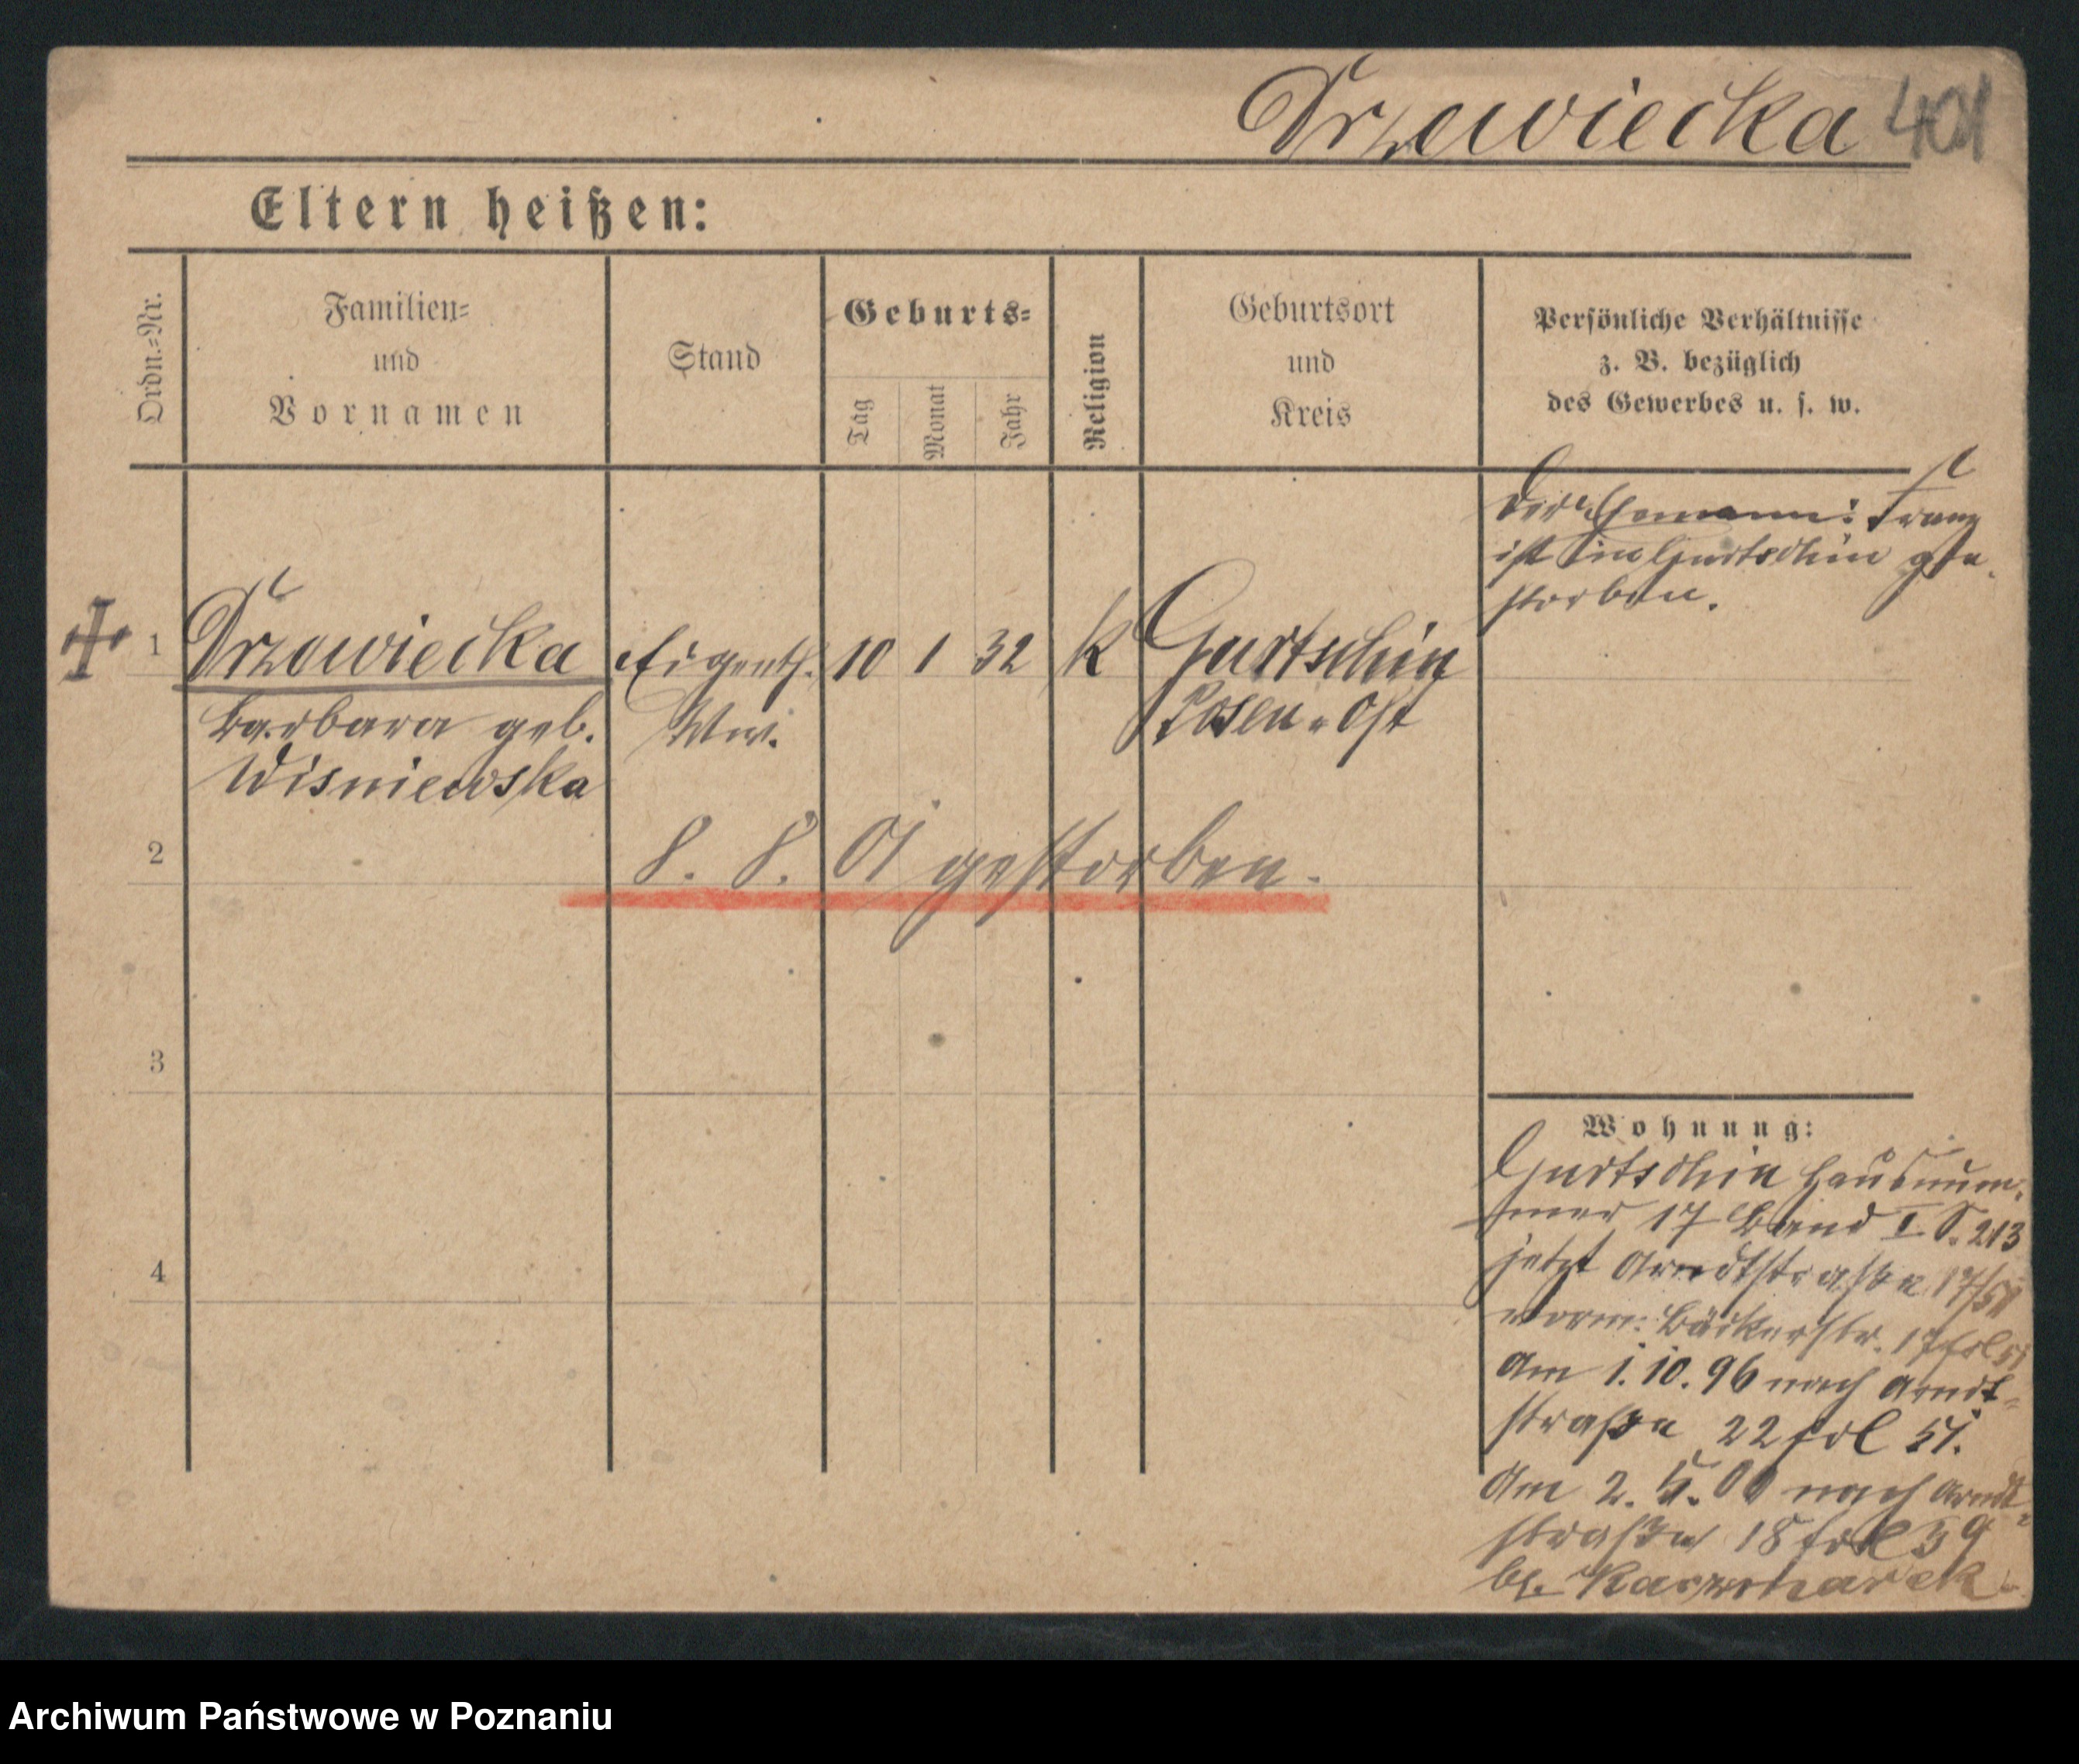 Drzewiecka 401
Eltern heißen:
Ordn.-Nr.
Familien=
und
Vornamen
Stand
Geburts=
Tag
Monat
Jahr
Religion
Geburtsort
und
Kreis
Persönliche Verhältnisse
z. B. bezüglich
des Gewerbes u. s. w.
Der Ehemann: Franz
ist in Gurtschin ge-
storben.
1 Drzewiecka Eigenth. 10 1 32 K Gurtschin
Barbara geb. Ww. Posen-Ost
Wisniewska
2 8. 8. 01 gestorben.
3
4
Wohnung:
Gurtschin Hausnum-
mer 17 Band I S. 213
jetzt Arndtstraße 17/51
Bäckerstr. 17
Am 1.10.96 nach Arndt-
straße 22 fol 51.
Am 2. 5. 00 nach Arndt-
straße 18 fol 59
bei Kaczmarek
Archiwum Państwowe w Poznaniu